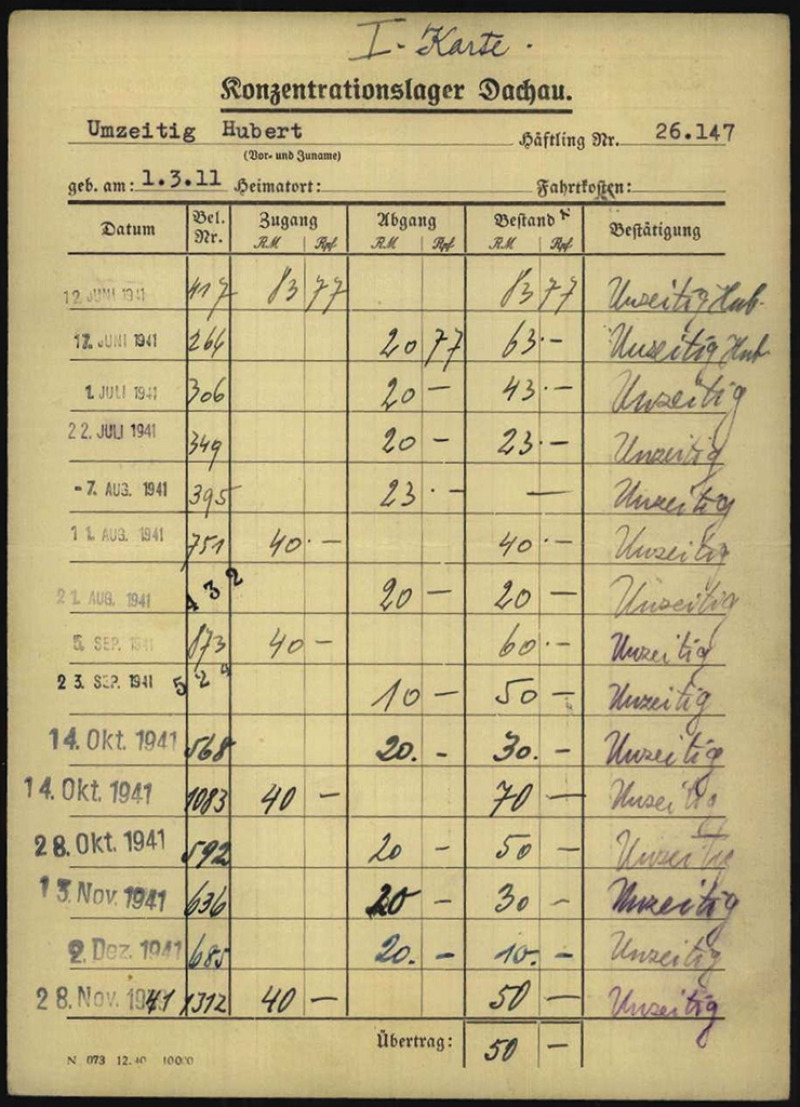 I. Karte.
Konzentrationslager Dachau.
Umzeitig Hubert Häftling Nr. 26.147
(Vor- und Zuname)
geb. am: 1.3.11 Heimatort: Fahrtkosten:
Datum Bel. Nr. Zugang RM Rpf Abgang RM Rpf Bestand RM Rpf Bestätigung
12. JUNI 1941 417 83 77 83 77 Unzeitig Hub.
17. JUNI 1941 266 20 77 63.- Unzeitig Hub
1. JULI 1941 306 20 - 43.- Unzeitig
22. JULI 1941 349 20 - 23.- Unzeitig
-7. AUG. 1941 395 23.- - Unzeitig
11. AUG. 1941 751 40.- 40.- Unzeitig
21. AUG. 1941 432 20 - 20 - Unzeitig
5. SEP. 1941 873 40 - 60.- Unzeitig
23. SEP. 1941 529 10 - 50 - Unzeitig
14. Okt. 1941 568 20. - 30. - Unzeitig
14. Okt. 1941 1083 40 - 70 - Unzeitig
28. Okt. 1941 592 20 - 50 - Unzeitig
13. Nov. 1941 636 20 - 30 - Unzeitig
2. Dez. 1941 685 20. - 10. - Unzeitig
28. Nov. 1941 1312 40 - 50 - Unzeitig
Übertrag: 50 -
N 073 12.40 10000